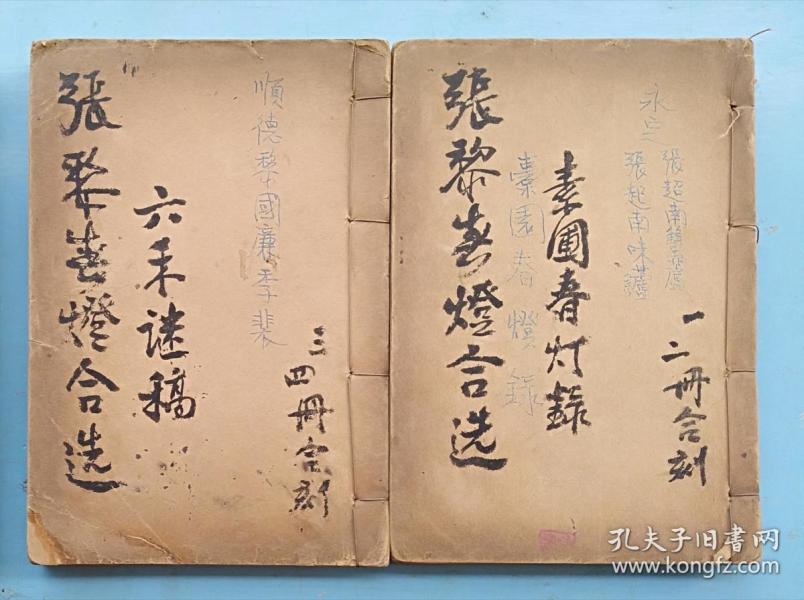 張黎春燈合选
素圃春灯錄
素園春燈錄
永定
張超南蟄廬
張起南味鱸
一二冊合刻
張黎春燈合选
六禾谜稿
順德黎國廉季裴
三四冊合刻
孔夫子旧书网
kongfz.com